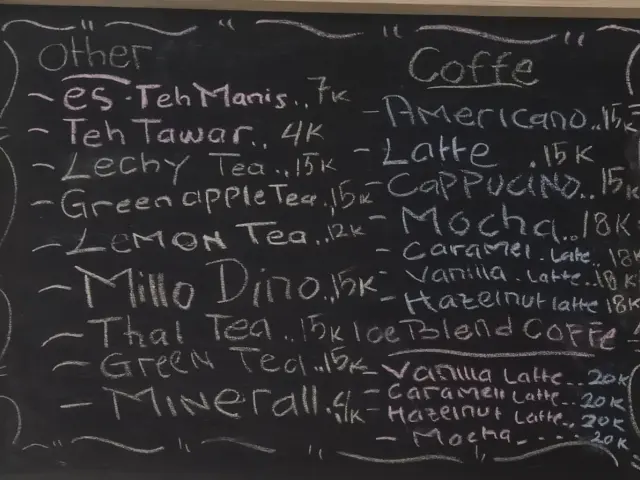 Other
- es. Teh Manis.. 7K
- Teh Tawar.. 4K
- Lechy Tea..15K
- Green apple Tea.15K
- Lemon Tea..12K
- Millo Dino..15K
- Thai Tea..15K
- Green Tea..15K
- Minerall.4K
Coffe
- Americano..15K
- Latte .15K
- Cappucino..15K
- Mocha..18K
- Caramel. Late..18K
- Vanilla. Latte..18K
- Hazelnut latte 18K
Ice Blend Coffe
- Vanilla Latte..20K
- Caramell Latte..20K
- Hazelnut Latte..20K
- Mocha.----20K